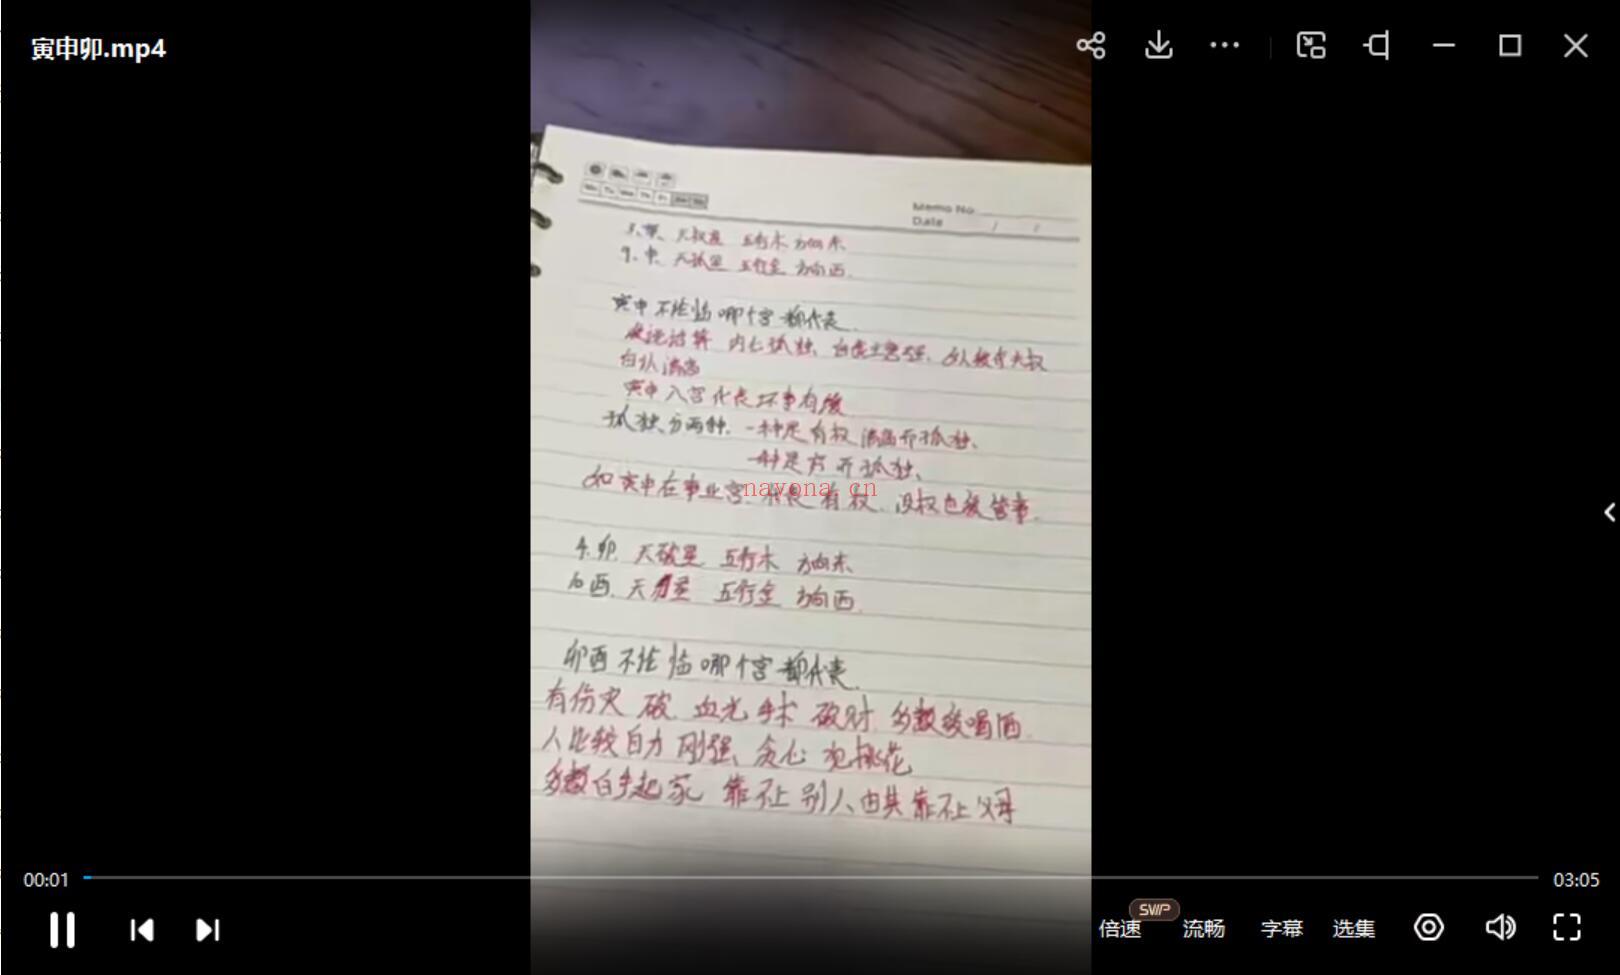 寅申卯.mp4
Memo No
Date / /
3、寅、天权星 五行木 方向东
9、申、天孤星 五行金 方向西.
寅申不论临哪个宫都代表.
内心孤独、
白仆
寅申入宫代表坏事有缘
孤独分两种. 一种是有权 而孤独、
一种是穷而孤独、
navona.cn
如寅申在事业宫. 代表有权. 没权也被管事.
4.卯. 天破星 五行木 方向东
10酉. 天刃星 五行金 方向西.
卯酉不论临哪个宫都代表.
有伤灾 破. 血光 手术 破财. 多数爱喝酒.
人比较自力 刚强、贪心 犯桃花
多数白手起家 靠不上别人由其靠不上父母
00:01
03:05
SVIP
倍速 流畅 字幕 选集